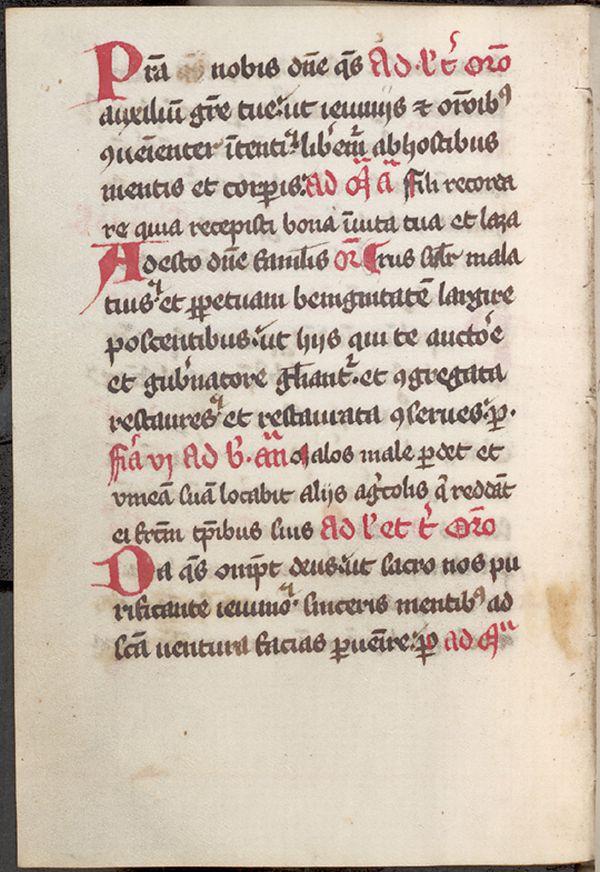 Pr̄a nobis dn̄e q̄s Ad · l' t͛ or̄o
auxiliū gr̄e tue: ut ieiuniis ⁊ or̄oībꝰ
ꝯueīenter ītenti: lib̄em̄ ab hostibus
mentis et corꝑis: ad m̄ a͞ fili recorda
re quia recepisti bona ī uita tua et laza
Adesto dn̄e famul̄is or̄ rus sil̄r mala
tuis: et ꝑpetuam benignitatē largire
poscentibus: ut hiis qui te auctōe
et gub̓natore gl̄iant᷑: et ꝯgregata
restaures: et restaurata ꝯserues: ꝑ.
fr̄ia vi ad b̓. an̄ malos male ꝑdet et
vineam suā locabit aliis ag̓colis q̓ reddāt
ei fr̄cm̄ tp̄ribus suis Ad l' et t͛ Or̄o
Da q̄s om̄pt deus: ut sacro nos pu
rificante ieiunio: sinceris mentibꝰ ad
sc̄a uentura facias ꝑuēīre: ꝑ ad m̄